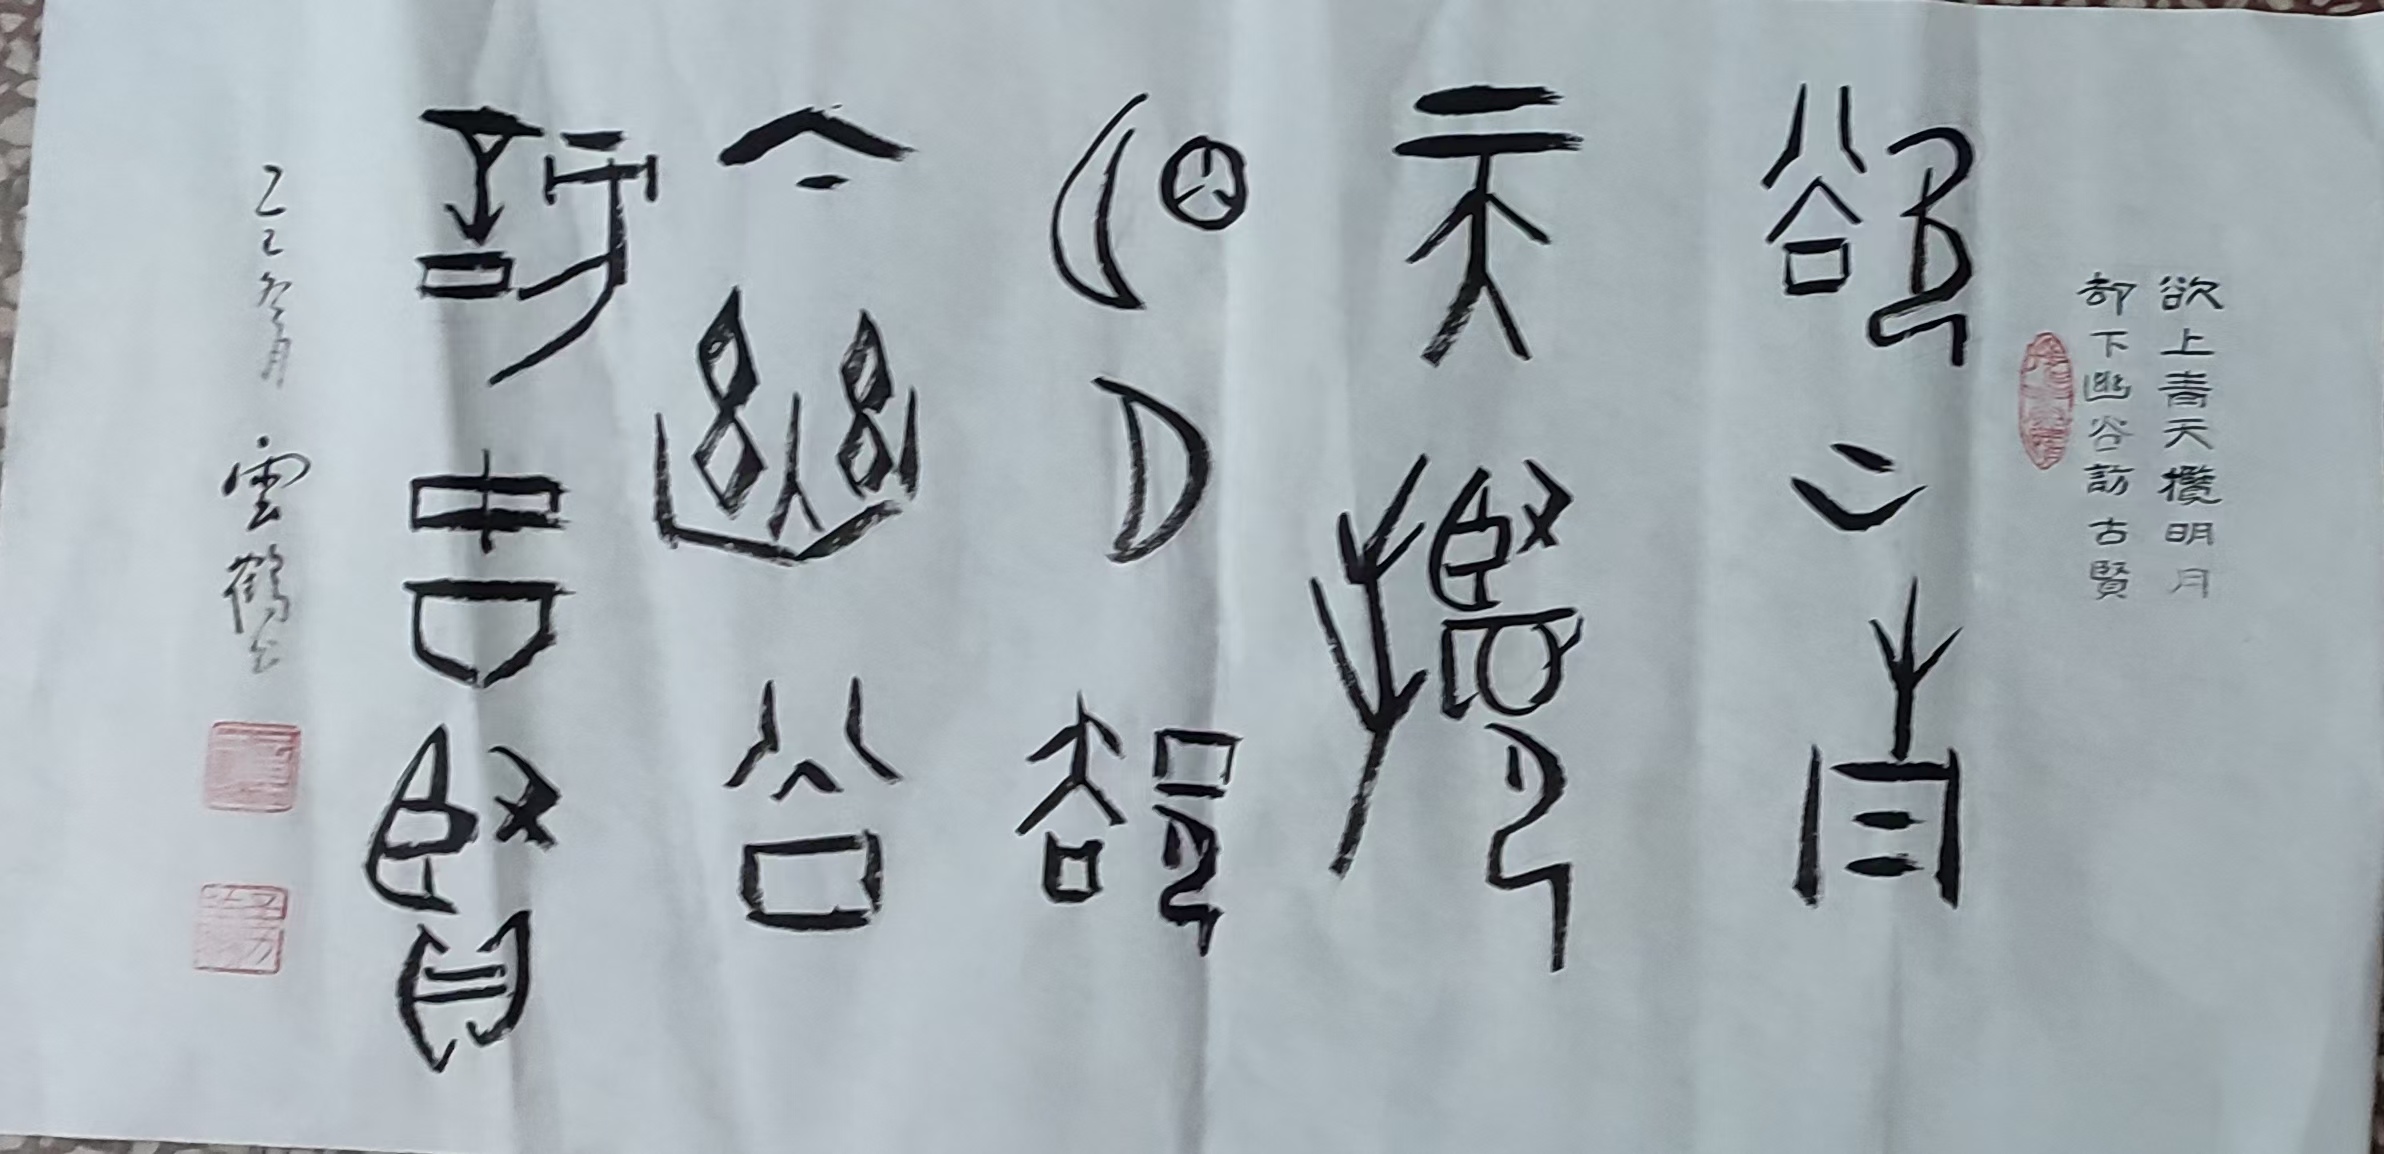 欲上青天攬明月
却下幽谷訪古賢
欲上青
天攬
明月卻
下幽谷
訪古賢
乙巳冬月 雲鶴